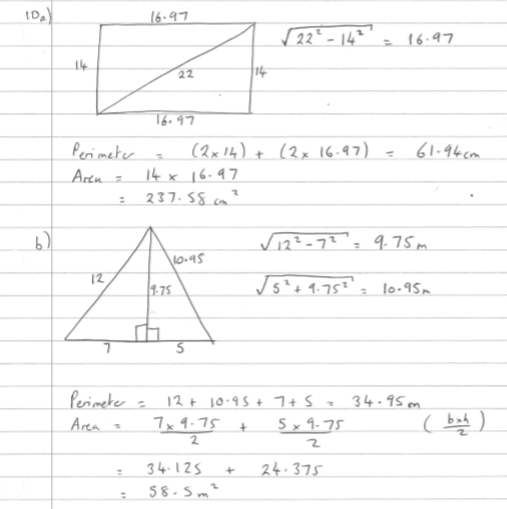 10a)
16.97
14
22
14
16.97
√22² - 14² = 16.97
Perimeter = (2 x 14) + (2 x 16.97) = 61.94cm
Area = 14 x 16.97
= 237.58 cm²
b)
12
10.95
9.75
7
5
√12² - 7² = 9.75m
√5² + 9.75² = 10.95m
Perimeter = 12 + 10.95 + 7 + 5 = 34.95m
Area = 7 x 9.75 / 2 + 5 x 9.75 / 2 (bxh / 2)
= 34.125 + 24.375
= 58.5 m²